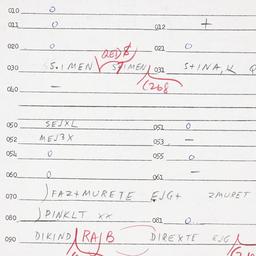 010 0
011 0 012 +
020 0 021 0
QED8
030 S.IMEN S7IMEN 031 S+INA,K Q
(268
040 —
050 SEJXL 051 0
052 MEJ3X 053 —
054 0 055 0
060 0 061 —
070 )FAZ+MURETE EJG+ 2MURET
080 )PINKLT xx 081 0
090 DIKIND RA/B DIREXTE EJG